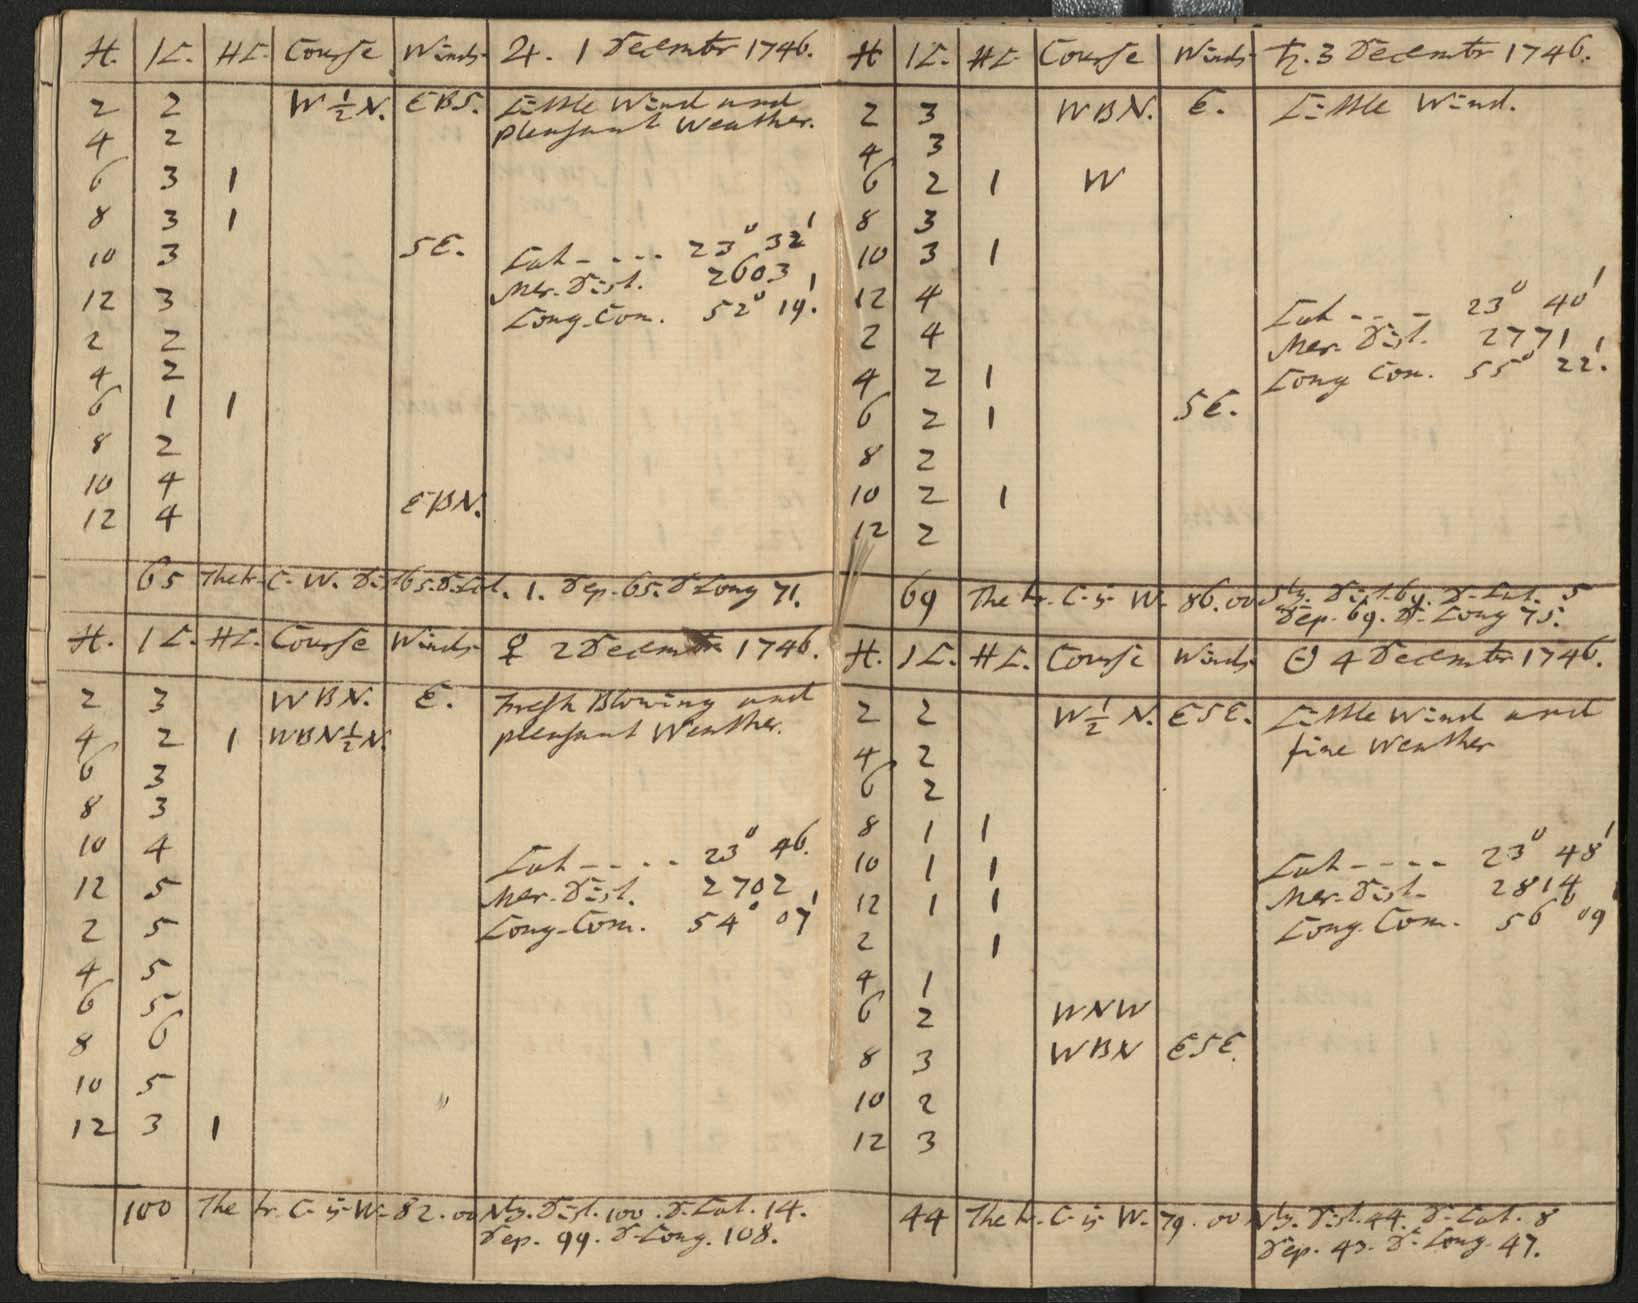 H. 1K. HK. Course Winds ♃. 1 December 1746.
2 2 W ½ N. EBS. Little Wind and
pleasant Weather.
4 2
6 3 1
8 3 1
10 3 SE. Lat - - - - 23° 32'
Mer. Dist. 2603
12 3 Long. Com. 52° 19'.
2 2
4 2
6 1 1
8 2
10 4
12 4 EBN.
65 The tr. C. W. Dist 65. D. Lat. 1. Dep. 65. D Long 71.
H. 1K. HK. Course Winds ♀ 2 December 1746.
2 3 WBN. E. Fresh Blowing and
4 2 1 WBN½N. pleasant Weather.
6 3
8 3
10 4 Lat - - - - 23° 46.
12 5 Mer. Dist. 2702
2 5 Long. Com. 54° 07'
4 5
6 5
8 6
10 5
12 3 1
100 The tr. C. is W. 82.00 Nly. Dist. 100. D. Lat. 14.
Dep. 99. D. Long. 108.
H 1K. HK. Course Winds ♄. 3 December 1746.
2 3 WBN. E. Little Wind.
4 3
6 2 1 W
8 3
10 3 1
12 4 Lat - - - 23° 40'
2 4 Mer. Dist. 2771
4 2 1 Long Com. 55° 22'.
6 2 1 SE.
8 2
10 2 1
12 2
69 The tr. C. is W. 86.00 Sly. Dist. 69. D. Lat. 5
Dep. 69. D. Long 75.
H. 1K. HK. Course Winds ☉ 4 December 1746.
2 2 W½ N. ESE. Little Wind and
4 2 fine Weather
6 2
8 1 1
10 1 1 Lat - - - - 23° 48'
12 1 1 Mer. Dist. 2814
2 1 Long. Com. 56° 09'
4 1
6 2 WNW
8 3 WBN ESE.
10 2
12 3
44 The tr. C. is W. 79.00 Nly. Dist. 44. D. Lat. 8
Dep. 43. D. Long. 47.